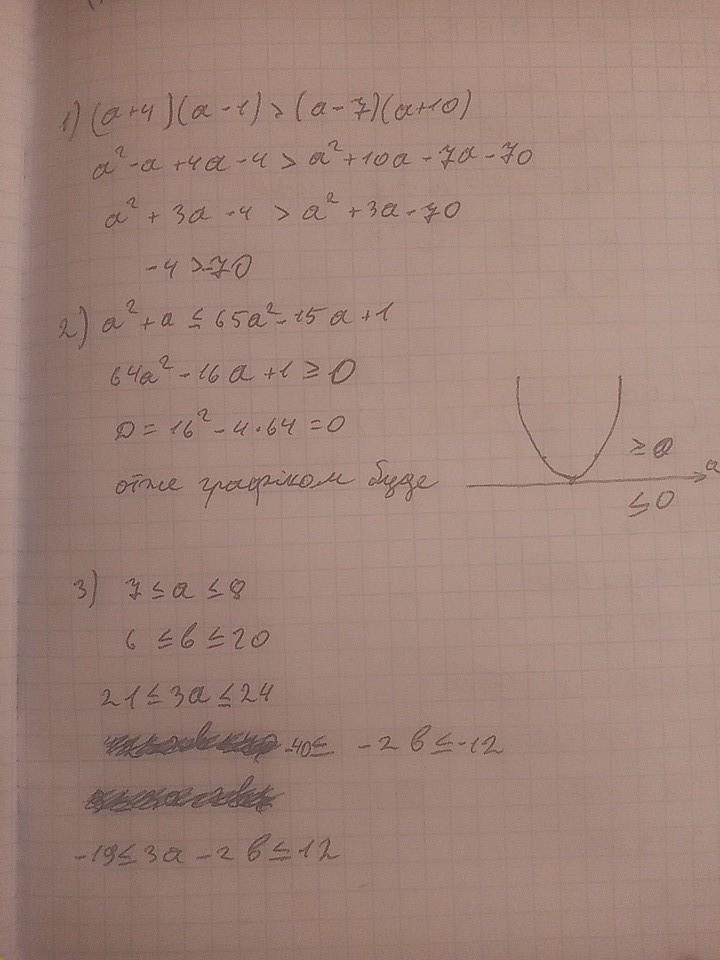 1) (a+4)(a-1) > (a-7)(a+10)
a²-a+4a-4 > a²+10a-7a-70
a² + 3a -4 > a² +3a-70
-4 >-70
2) a²+a ≤ 65a²-15a+1
64a²-16a+1 ≥ 0
D = 16²-4·64 = 0
отже графіком буде
≥ 0
a
≤ 0
3) 7 ≤ a ≤ 8
6 ≤ b ≤ 20
21 ≤ 3a ≤ 24
-40 ≤ -2b ≤ -12
-19 ≤ 3a-2b ≤ 12